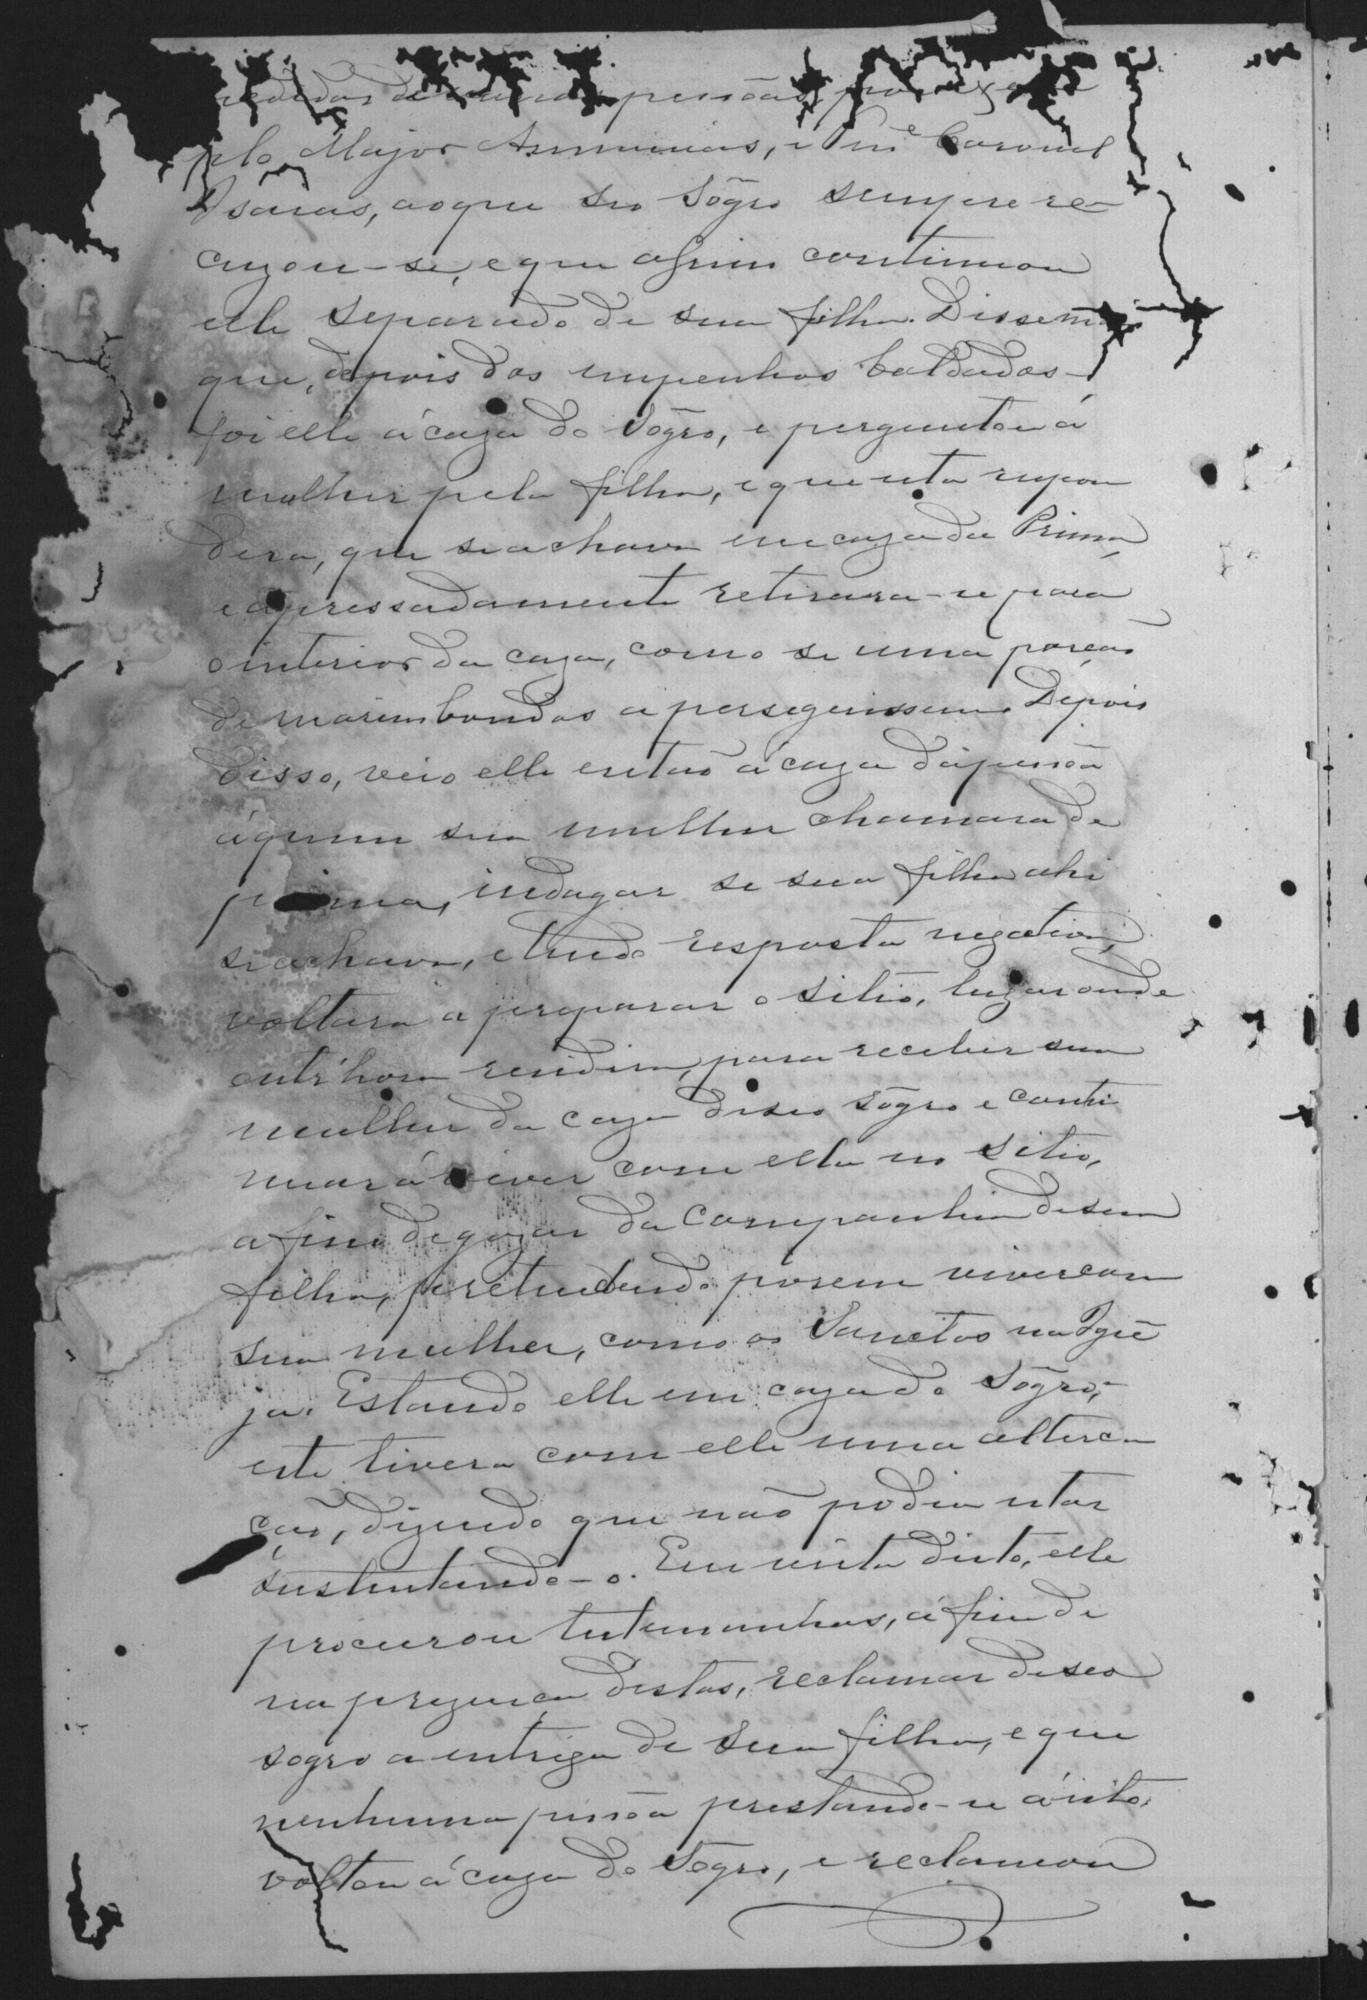 pessôas, por exemplo
pelo Major Annunias, e Tenᵉ Coronel
Isaias, ao que seo Sôgro sempre re
cuzou-se, e que assim continuou
elle separado de sua filha. Disse mais
que, depois dos empenhos baldados
foi elle á caza do Sôgro, e perguntou á
mulher pela filha, e que esta respon
dera, que se achava em caza da Prima,
e apressadamente retirara-se para
o interior da caza, como se uma porção
de marimbondos a perseguissem. Depois
disso, veio elle então á caza da pessôa
á quem sua mulher chamara de
prima, indagar se sua filha ahi
se achava, e tendo resposta negativa,
voltara a preparar o sitio, lugar onde
outr'hora rendira, para receber sua
mulher da caza de seo sôgro e conti
nuar á viver com ella no sitio,
a fim de gozar da companhia de sua
filha, pretendendo porem viver com
sua mulher, como os Sanctos na Igre
ja. Estando elle em caza do Sôgro,
este tivera com elle uma alterca
ção, dizendo que não podia estar
sustentando-o. Em vista disto, elle
procurou testemunhas, a fim de
na prezença destas, reclamar de seo
sogro a entrega de sua filha, e que
nenhuma pessôa prestando-se á isto,
voltou á caza do Sogro, e reclamou